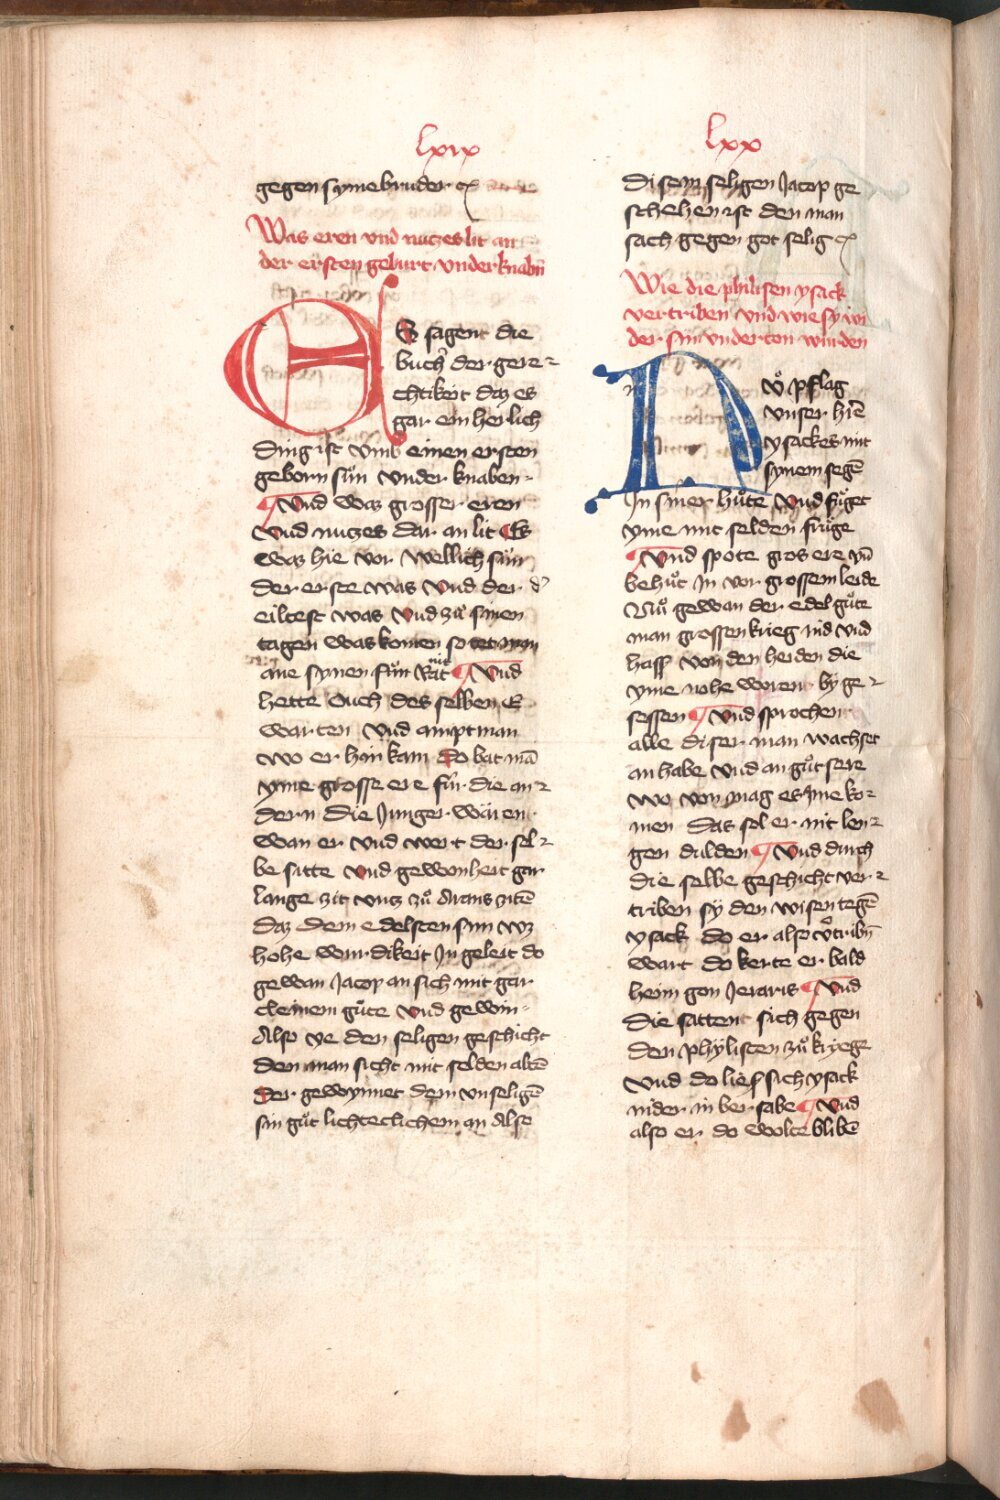 lxix
gegen syme bruder
Was eren vnd nuczes lit an
der ersten geburt vnder knabn̄
ES sagent die
buch der gere⸗
chtikeit daz es
gar ein herlich
ding ist vmb einen ersten
geborn sůn vnder knaben
¶ Vnd waz grosser eren
vnd nuczes dar an lit ¶ Es
waz hie vor wellich sůn
der erste was vnd der
eiltest was vnd zů sinen
tagen was komen so tet man
ane synen sůn Rat nit ¶ Vnd
hette ouch des selben
warten vnd amptman
wo er hin kam do bat mā
yme grosse ere für die an⸗
dern die Junger wären
wan er vnd wert der sel⸗
be sitte vnd gewonheit gar
lange zit vncz zů
daz dem edelsten sun
hohe wirdikeit In geleit do
gewan Jacop an sich mit gar
cleinem gůte vnd gewin
Also ye den seligen geschicht
den man sicht mit selden altē
der gewynnet dem vnseligē
sin gůt lichteclichem an Also
lxx
disem seligen Jacop ge
schehen ist den man
sach gegen got selig
Wie die philisen ysack
vertriben vnd wie sy im
der sin vnderton wurden
Nv̊ pflag
vnser h're
ysackes mit
synem segē
In siner hůte vnd fůget
yme mit selden fůge
¶ Vnd spote gros ere vn̄
behůt In vor grossem leide
Nů gewan der edel gůte
man grossen krieg nid vnd
hass von den heiden die
yme nohe woren by ge⸗
sessen ¶ Vnd sprochen
alle diser man wachset
an habe vnd an gůt sere
wo von mag es Ime ko⸗
men das sol er nit len⸗
gen dulden ¶ Vnd durch
die selbe geschicht ver⸗
triben sy den wisen tegē
ysack do er also v'tribn̄
wart do kerte er bald
heim gon Jeraris ¶ Vnd
die sattent sich gegen
den phylisten zů kriege
vnd do lies sich ysack
nider in bersabe ¶ Vnd
also er do wolte blibē